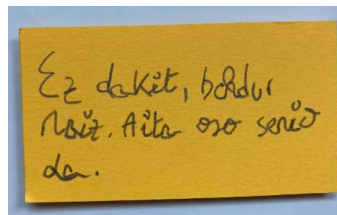 Ez dakit, beldur
naiz. Aita oso serio
da.